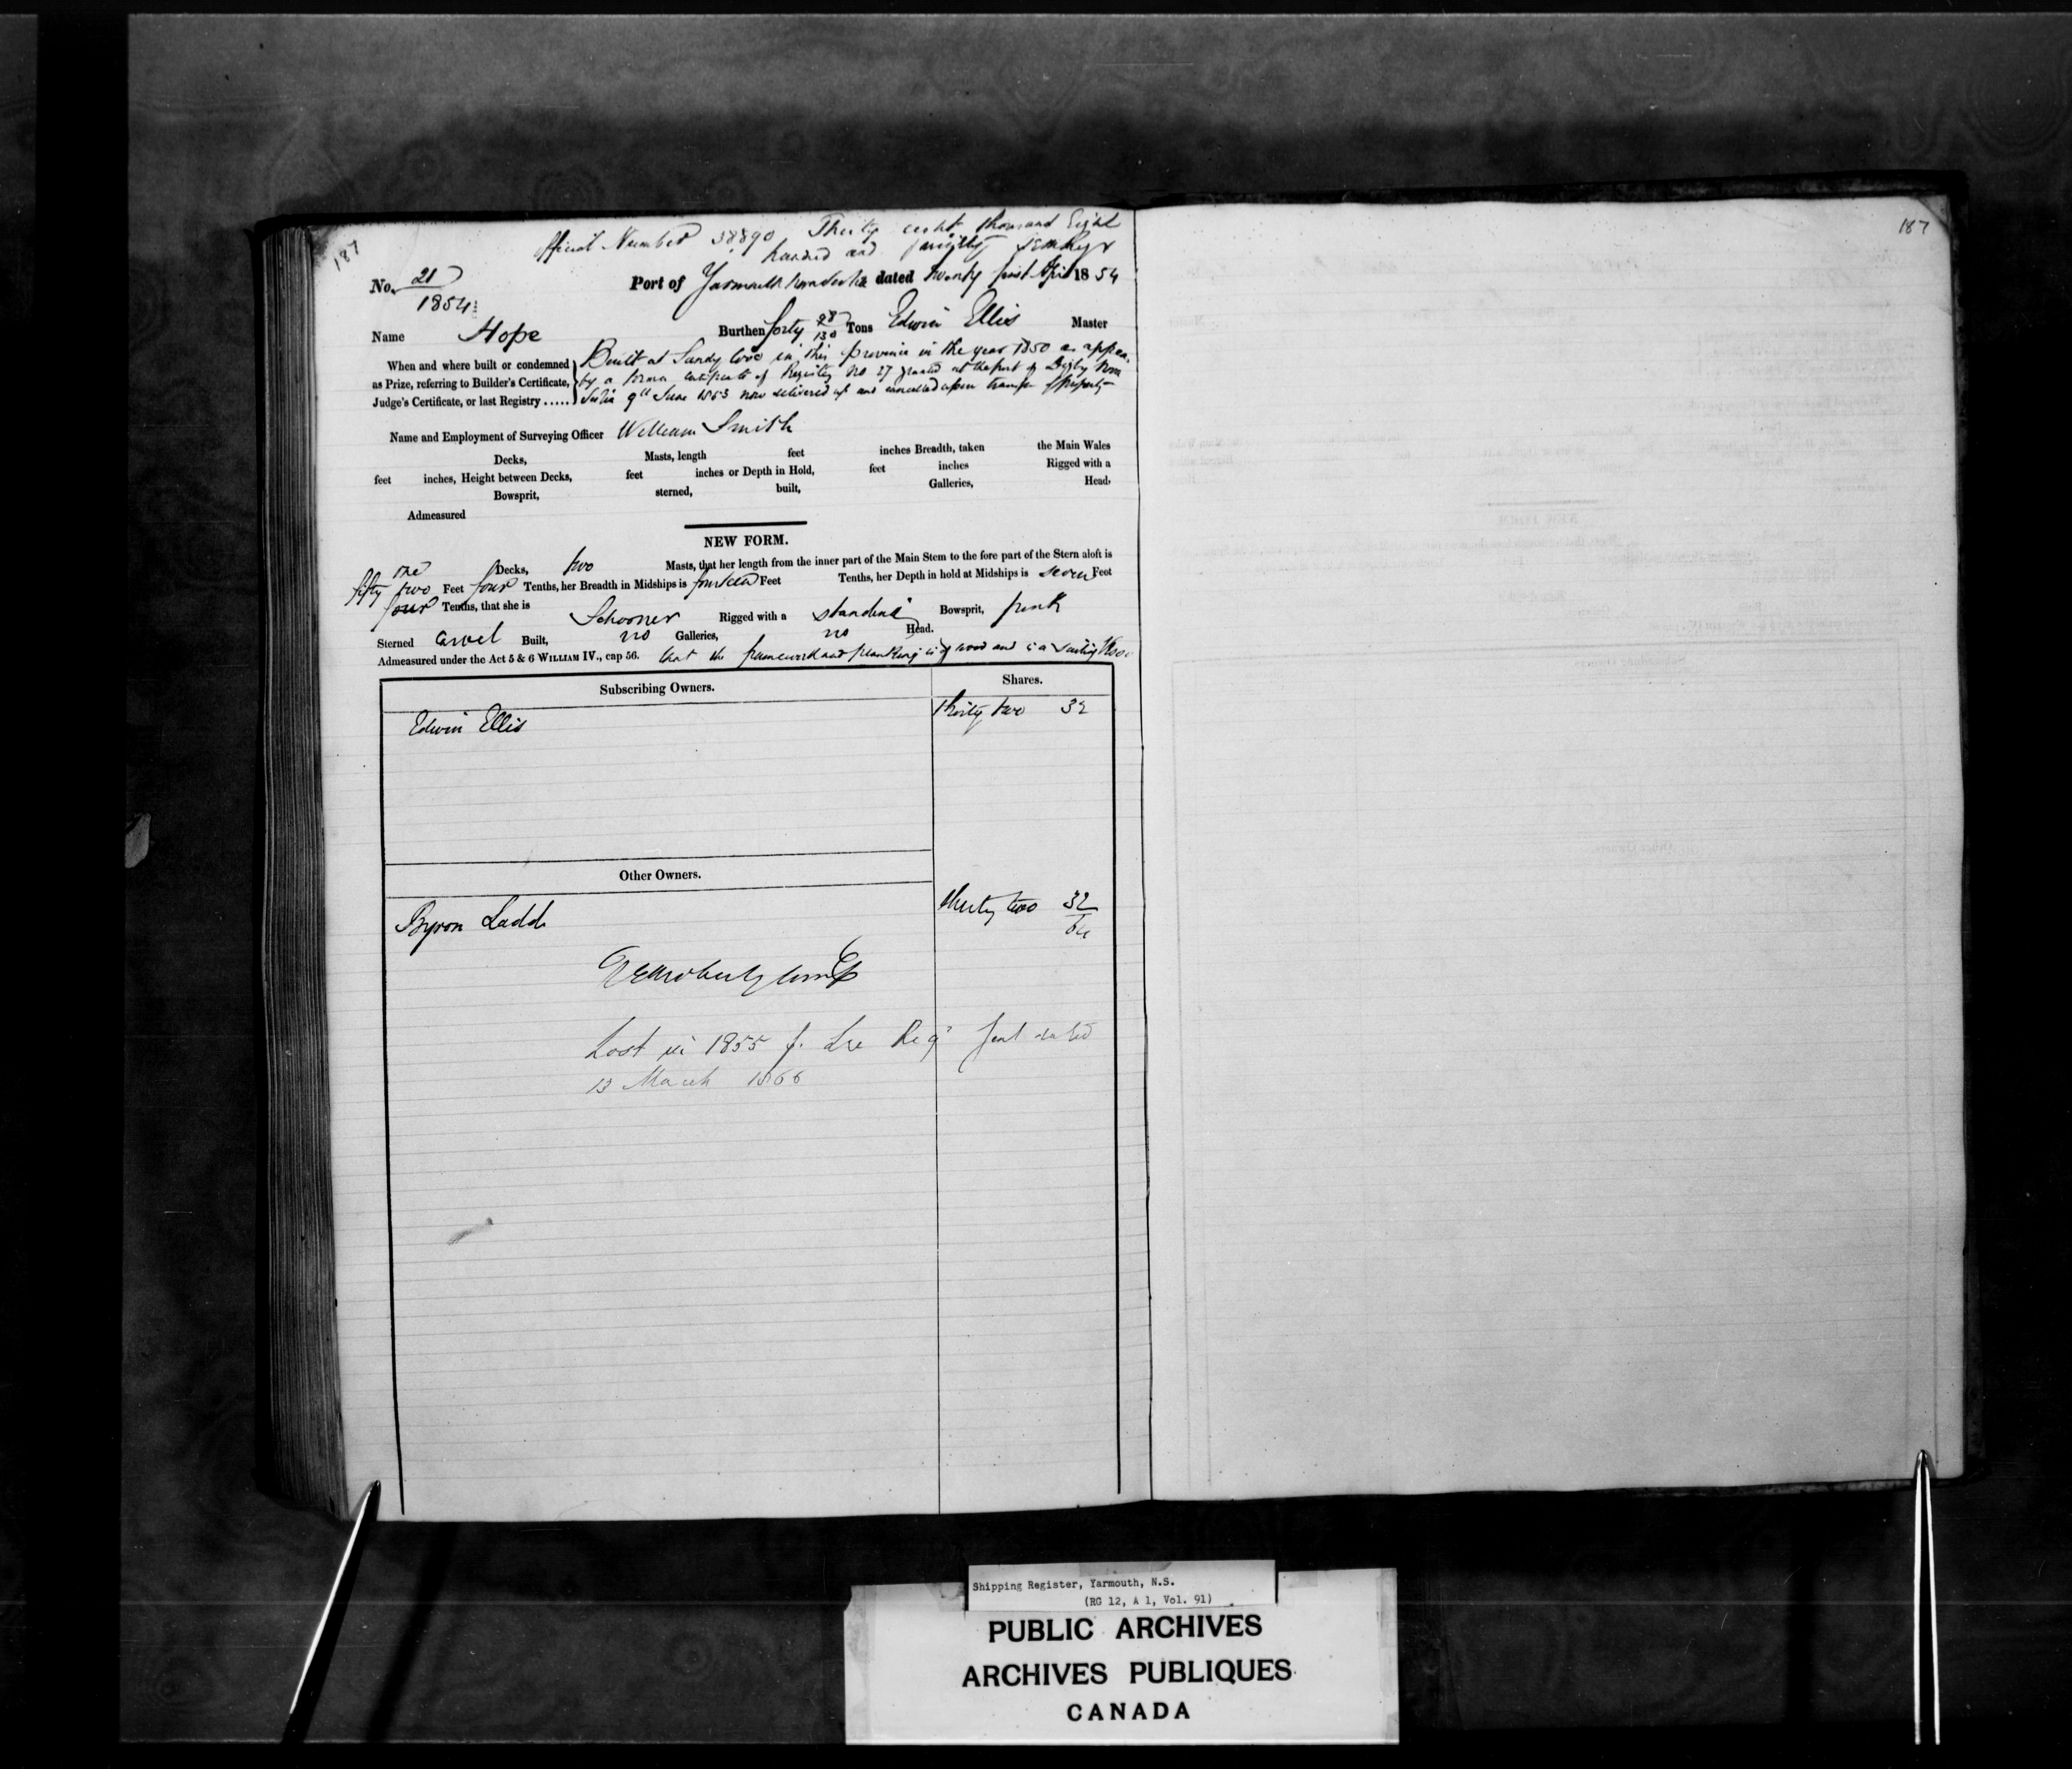 187
187
Official Number 38890 Thirty eight thousand Eight
hundred and
No. 21
1854
Port of Yarmouth Nova Scotia dated twenty first April 1854
Name Hope Burthen forty 28/130 Tons Edwin Ellis Master
When and where built or condemned
as Prize, referring to Builder's Certificate,
Judge's Certificate, or last Registry .....
Built at Sandy Cove in this province in the year 1850 as appears
by a former certificate of Registry No 27 granted at the port of Digby Nova
Scotia 9th June 1853 now delivered up and cancelled upon transfer of Property
Name and Employment of Surveying Officer William Smith
Decks, Masts, length feet inches Breadth, taken the Main Wales
feet inches, Height between Decks, feet inches or Depth in Hold, feet inches Rigged with a
Bowsprit, sterned, built, Galleries, Head,
Admeasured
NEW FORM.
one Decks, two Masts, that her length from the inner part of the Main Stem to the fore part of the Stern aloft is
fifty two Feet four Tenths, her Breadth in Midships is fourteen Feet Tenths, her Depth in hold at Midships is seven Feet
four Tenths, that she is Schooner Rigged with a standing Bowsprit,
Sterned Carvel Built, no Galleries, no Head.
Admeasured under the Act 5 & 6 WILLIAM IV., cap 56. that the framework and planking is of wood and is a sailing
Subscribing Owners. Shares.
Edwin Ellis thirty two 32
Other Owners.
Byron Ladd thirty two 32
64
Lost in 1855 Reg
13 March 1866
Shipping Register, Yarmouth, N.S.
(RG 12, A 1, Vol. 91)
PUBLIC ARCHIVES
ARCHIVES PUBLIQUES
CANADA